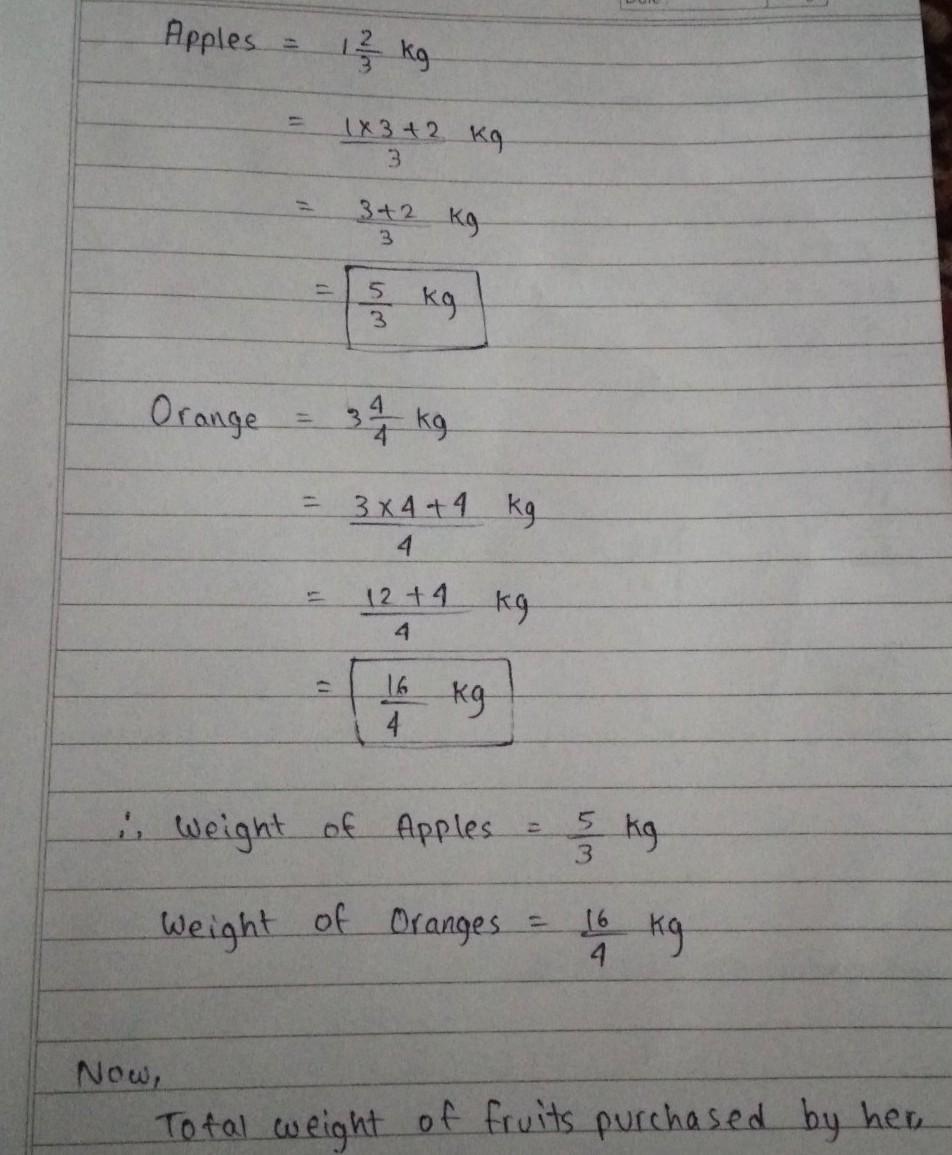 Apples = 1 2/3 kg
= 1×3+2/3 kg
= 3+2/3 kg
= 5/3 kg
Orange = 3 4/4 kg
= 3×4+4/4 kg
= 12+4/4 kg
= 16/4 kg
∴ Weight of Apples = 5/3 kg
Weight of Oranges = 16/4 kg
Now,
Total weight of fruits purchased by her,